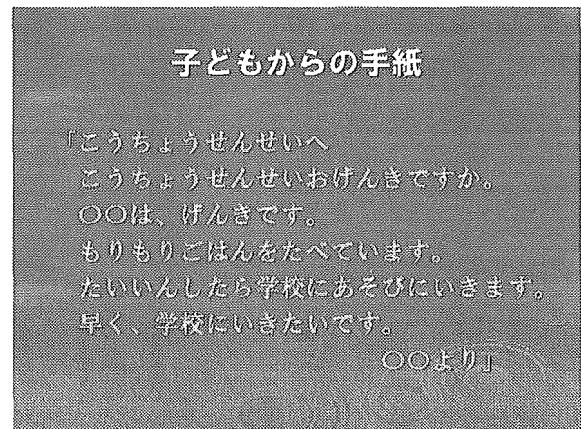 子どもからの手紙
「こうちょうせんせいへ
こうちょうせんせいおげんきですか。
〇〇は、げんきです。
もりもりごはんをたべています。
たいいんしたら学校にあそびにいきます。
早く、学校にいきたいです。
〇〇より」